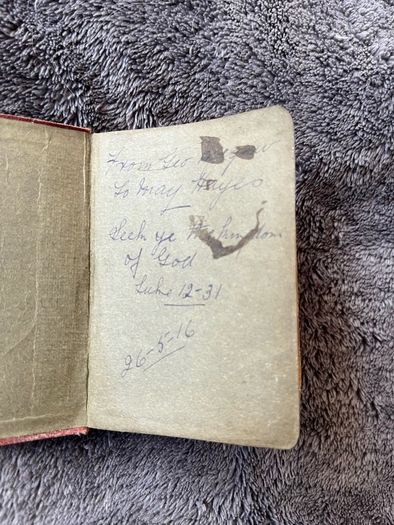 From Geo
to May Hayes
Seek ye the kingdom
of God
Luke 12-31
26-5-16